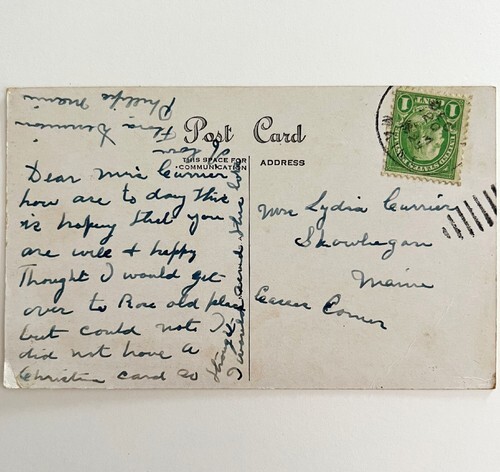 Post Card
THIS SPACE FOR
COMMUNICATION
ADDRESS
1 1
Dear Mrs Currier
how are to day this
is hoping that you
are well & happy
Thought I would get
over to Rose old place
but could not I
did not have a
Christin card so
thought
I would send this
love
Flora
Phillips Maine
Mrs Lydia Currier
Skowhegan
Maine
Corner